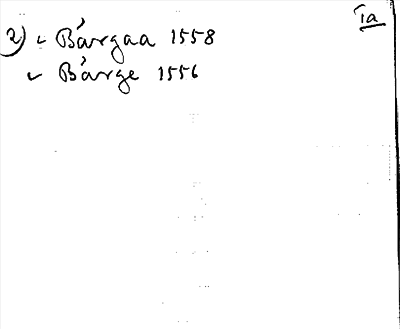 Ia
2) - Bårgaa 1558
- Bårge 1556